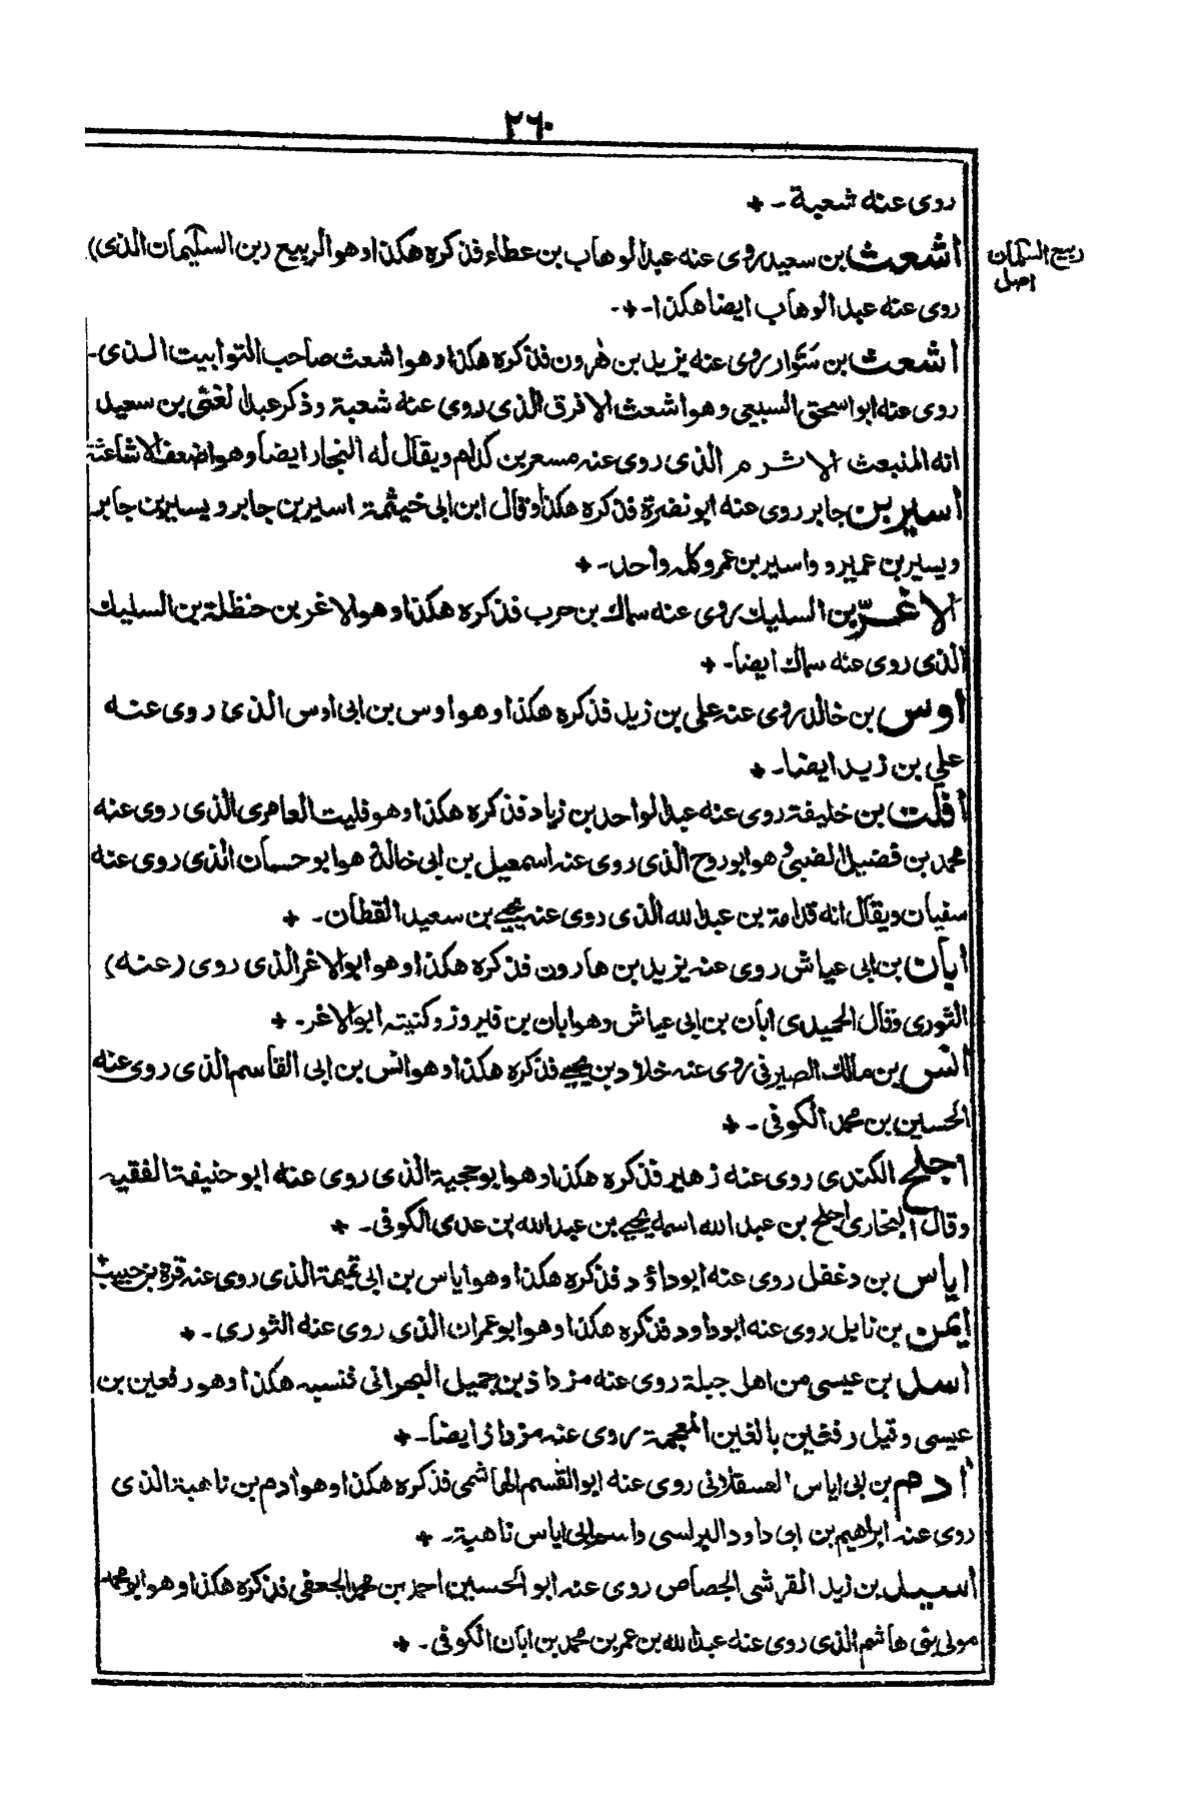 ٢٦٠
روى عنه شعبة - +
أشعث بن سعيد روى عنه عبد الوهاب بن عطاء فذكره هكذا وهو الربيع (بن السكيمان الذى)
ربيع السكمان
اصل
روى عنه عبد الوهاب ايضا هكذا - + -
اشعث بن سَوّار روى عنه يزيد بن هٰرون فذكره هكذا وهو اشعث صاحب التوابيت الذى -
روى عنه ابو اسحق السبيعى وهو اشعث الافرق الذى روى عنه شعبة وذكر عبد الغنى بن سعيد
انه المنبعث الاشرم الذى روى عنه مسعر بن كدام ويقال له النجار ايضا وهو اضعف الاشاعثة
أسير بن جابر روى عنه ابو نضرة فذكره هكذا وقال ابن ابى خيثمة اسير بن جابر ويسير بن جابر
ويسير بن عمير و واسير بن عمرو كله واحد - +
الاغرّ بن السليك روى عنه سماك بن حرب فذكره هكذا وهو الاغر بن حنظلة بن السليك
الذى روى عنه سماك ايضا - +
أوس بن خالد روى عنه على بن زيد فذكره هكذا وهو اوس بن ابى اوس الذى روى عنه
على بن زيد ايضا - +
أفلت بن خليفة روى عنه عبد الواحد بن زياد فذكره هكذا وهو فليت العامرى الذى روى عنه
محمد بن فضيل الضبى وهو ابو روح الذى روى عنه اسمعيل بن ابى خالد وهو ابو حسان الذى روى عنه
سفيان ويقال انه قدامة بن عبد الله الذى روى عنه يحيى بن سعيد القطان - +
أبان بن ابى عياش روى عنه يزيد بن هارون فذكره هكذا وهو ابو الاغر الذى روى (عنه)
الثورى وقال الحميدى ابان بن ابى عياش وهو ابان بن فيروز وكنيته ابو الاغر - +
أنس بن مالك الصيرفى روى عنه خلاد بن يحيى فذكره هكذا وهو انس بن ابى القاسم الذى روى عنه
الحسين بن محمد الكوفى - +
اجلح الكندى روى عنه زهير فذكره هكذا وهو ابو حجية الذى روى عنه ابو حنيفة الفقيه
وقال البخارى اجلح بن عبد الله اسمه يحيى بن عبد الله بن عدى الكوفى - +
اياس بن دغفل روى عنه ابو داؤد فذكره هكذا وهو اياس بن ابى تميمة الذى روى عنه قرة بن حبيب +
أيمن بن نابل روى عنه ابو داود فذكره هكذا وهو ابو عمران الذى روى عنه الثورى - +
اسد بن عيسى من اهل جبلة روى عنه مزداذ بن جميل البهرانى فنسبه هكذا وهو رفعين بن
عيسى وقيل رفغين بالغين المعجمة روى عنه مزداذ ايضا - +
أدم بن ابى اياس العسقلانى روى عنه ابو القسم الهاشمى فذكره هكذا وهو أدم بن ناهية الذى
روى عنه ابراهيم بن ابى داود البرلسى واسم ابى اياس ناهية - +
أسيد بن زيد القرشى الجصاص روى عنه ابو الحسين احمد بن محمد الجعفى فذكره هكذا وهو ابو محمد
مولى بنى هاشم الذى روى عنه عبد الله بن عمر بن محمد بن ابان الكوفى - +